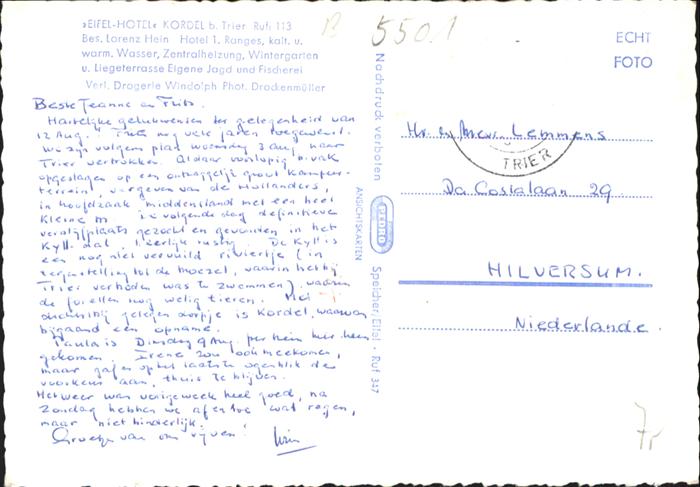 »EIFEL-HOTEL« KORDEL b. Trier Ruf: 113
Bes. Lorenz Hein Hotel 1. Ranges, kalt. u.
warm. Wasser, Zentralheizung, Wintergarten
u. Liegeterrasse Eigene Jagd und Fischerei
Verl. Drogerie Windolph Phot. Drockenmüller
5501
ECHT
FOTO
Beste Jeanne en Frits.
Hartelijke gelukwensen ter gelegenheid van
12 Aug. nog vele jaren toegewenst.
We zijn volgens plan woensdag 3 aug naar
Trier vertrokken. Aldaar voorlopig bivak
opgeslagen op een ontzaggelijk groot kampeer-
terrein, vergeven van de Hollanders,
in hoofdzaak middenstand met een heel
kleine m volgende dag definitieve
verblijfplaats gezocht en gevonden in het
Kyll-dal, heerlijk rustig. De Kyll is
een nog niet vervuild riviertje (in
tegenstelling tot de Moezel, waarin het bij
Trier verboden was te zwemmen), waarin
de forellen nog welig tieren. Het
dichtstbij gelegen dorpje is Kordel, waarvan
bijgaand een opname.
Paula is Dinsdag 9 Aug. per trein hier heen
gekomen. Irene zou ook meekomen,
maar gaf er op het laatste ogenblik de
voorkeur aan, thuis te blijven.
Het weer was vorige week heel goed, na
Zondag hebben we af en toe wat regen,
maar niet hinderlijk.
Groetjes van ons vijven!
Wim
Nachdruck verboten
ANSICHTSKARTEN
PEDRO
Speicher/Eifel - Ruf 347
TRIER
Hr en Mevr. Lemmens
Da Costalaan 29
HILVERSUM.
Niederlande